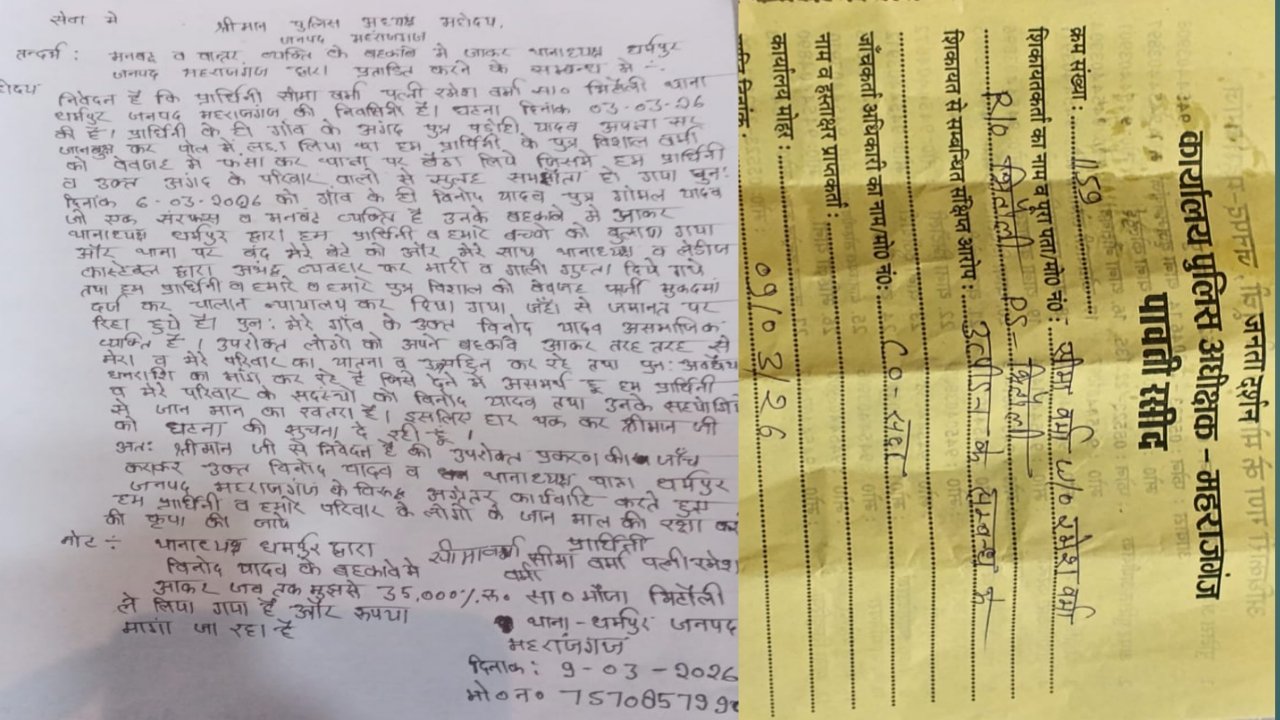 सेवा मे
श्रीमान पुलिस अध्यक्ष महोदय,
जनपद महराजगंज
सन्दर्भ : मनबढ़ व चालाक व्यक्ति के बहकावे मे आकर थानाध्यक्ष धर्मपुर
जनपद महराजगंज द्वारा प्रताड़ित करने के सम्बन्ध मे :-
होदय
निवेदन है कि प्रार्थिनी सीमा वर्मा पत्नी रमेश वर्मा सा० भिटौली थाना
धर्मपुर जनपद महराजगंज की निवासिनी है। घटना दिनांक 03-03-26
की है। प्रार्थिनी के ही गाँव के अंगद पुत्र यादव अपना सर
जानबुझ कर पोल मे लड़ा लिया था हम प्रार्थिनी के पुत्र विशाल वर्मा
को बेवजह मे फंसा कर थाना पर बैठा लिये जिसमे हम प्रार्थिनी
व उक्त अंगद के परिवार वालो से सुलह समझौता हो गया पुनः
दिनांक 6-03-2026 को गाँव के ही विनोद यादव पुत्र गोमल यादव
जो एक सरकस व मनबढ़ व्यक्ति है उनके बहकावे मे आकर
थानाध्यक्ष धर्मपुर द्वारा हम प्रार्थिनी व हमारे बच्चो को बुलाया गया
और थाना पर बंद मेरे बेटे को और मेरे साथ थानाध्यक्ष व लेडीज
कास्टेबल द्वारा अभद्र व्यवहार कर मारी व गाली गुप्ता दिये गये
तथा हम प्रार्थिनी व हमारे व हमारे पुत्र विशाल को बेवजह फर्जी मुकदमा
दर्ज कर चालान न्यायालय कर दिया गया जहाँ से जमानत पर
रिहा हुये है। पुनः मेरे गाँव के उक्त विनोद यादव असमाजिक
व्यक्ति है। उपरोक्त लोगो को अपने बहकावे आकर तरह तरह से
मेरा व मेरे परिवार का यातना व उत्पीड़ित कर रहे तथा पुनः अवैध
धनराशि का मांग कर रहे है जिसे देने मे असमर्थ हूँ हम प्रार्थिनी
व मेरे परिवार के सदस्यो को विनोद यादव तथा उनके सहयोगि
से जान मान का खतरा है। इसलिए हार थक कर श्रीमान जी
को घटना की सुचना दे रही हूँ।
अतः श्रीमान जी से निवेदन है की उपरोक्त प्रकरण की जाँच
कराकर उक्त विनोद यादव व थानाध्यक्ष थाना धर्मपुर
जनपद महराजगंज के विरुद्ध अग्रेतर कार्यवाटि करते हुए
हम प्रार्थिनी व हमारे परिवार के लोगो के जान माल की रक्षा कर
की कृपा की जाये
नोट :- थानाध्यक्ष धर्मपुर द्वारा
विनोद यादव के बहकावे मे
आकर जब तक मुझसे 35,000/.रु०
ले लिया गया है और रूपया
मांगा जा रहा है
प्रार्थिनी
सीमा वर्मा सीमा वर्मा पत्नी रमेश
वर्मा
सा० मौजा भिटौली
थाना - धर्मपुर जनपद
महराजगंज
दिनांक : 9-03-2026
मो०न० 757085799
जनता दर्शन
कार्यालय पुलिस अधीक्षक - महराजगंज
पावती रसीद
क्रम संख्या : 1159
शिकायतकर्ता का नाम व पूरा पता/मो० नं० : सीमा वर्मा w/o रमेश वर्मा
R/o भिटौली PS- भिटौली
शिकायत से सम्बन्धित संक्षिप्त आरोप : उत्पीड़न के सम्बन्ध में
जाँचकर्ता अधिकारी का नाम/मो० नं० : C.O- सदर
नाम व हस्ताक्षर प्राप्तकर्ता :
कार्यालय मोहर : 09/03/26